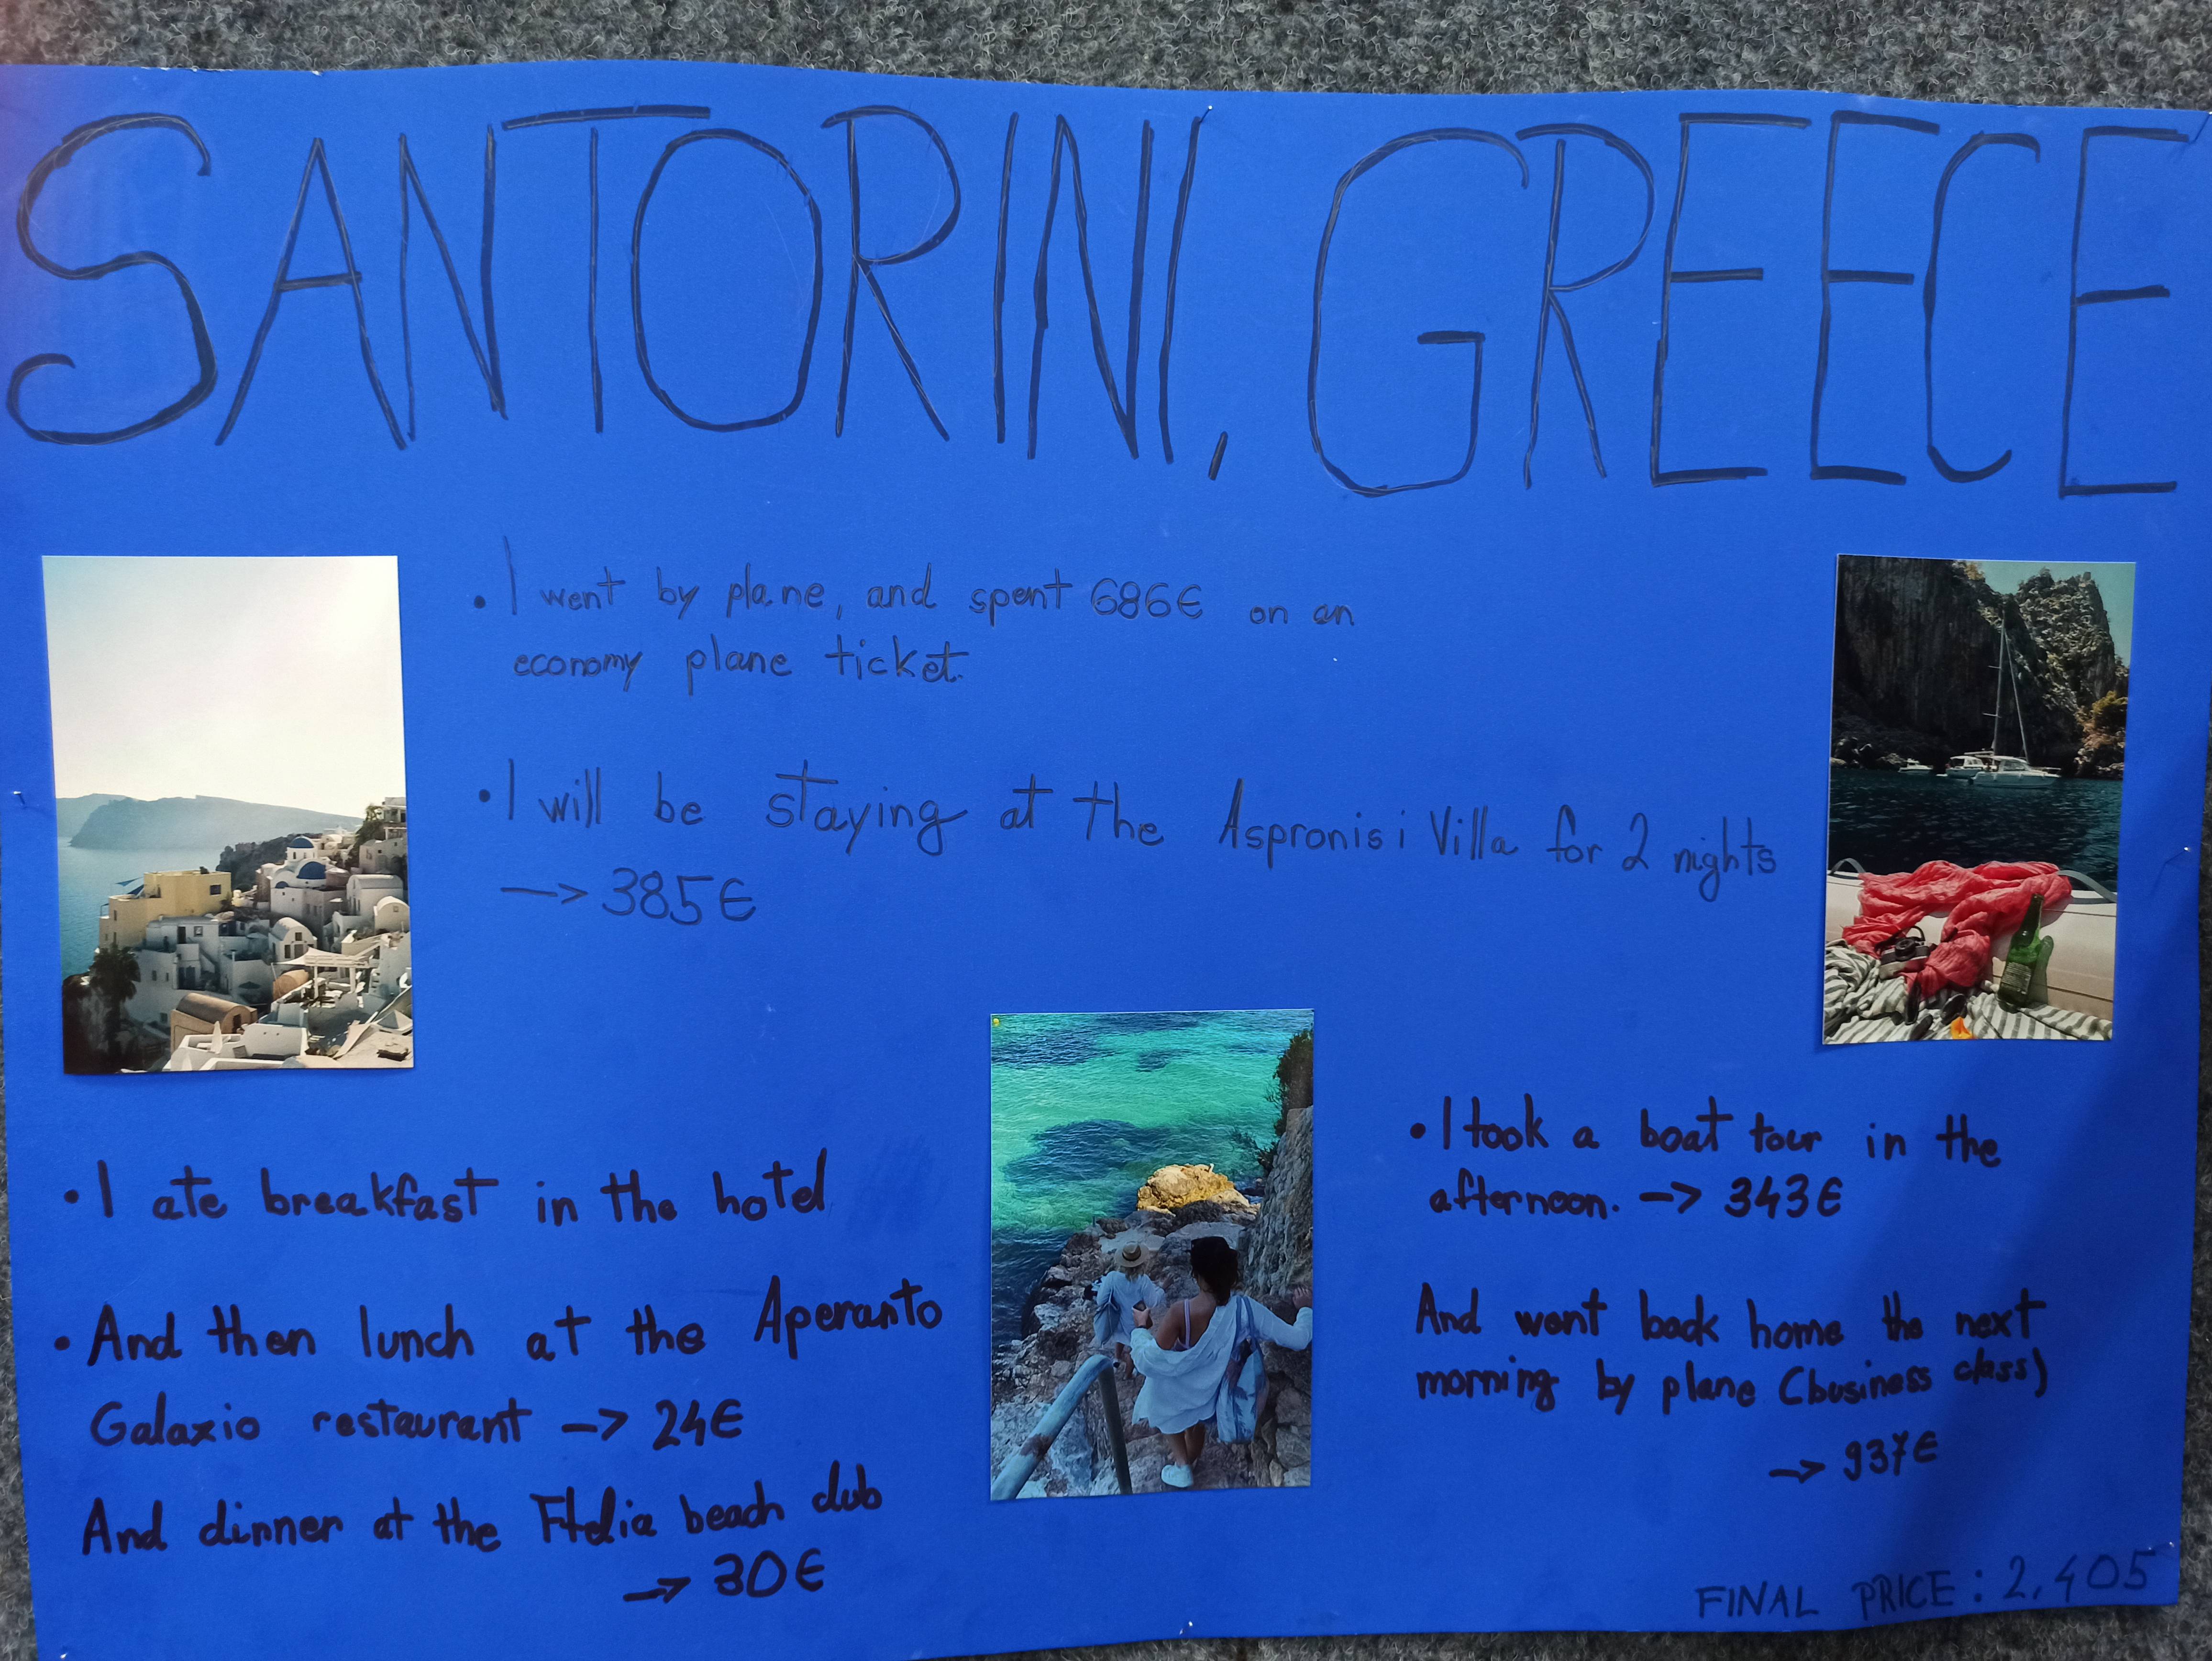 SANTORINI, GREECE
• I went by plane, and spent 686€ on an
economy plane ticket.
• I will be staying at the Aspronisi Villa for 2 nights
—> 385€
• I ate breakfast in the hotel
• And then lunch at the Aperanto
Galazio restaurant —> 24€
And dinner at the Ftelia beach club
—> 30€
• I took a boat tour in the
afternoon. —> 343€
And went back home the next
morning by plane (business class)
—> 937€
FINAL PRICE: 2,405